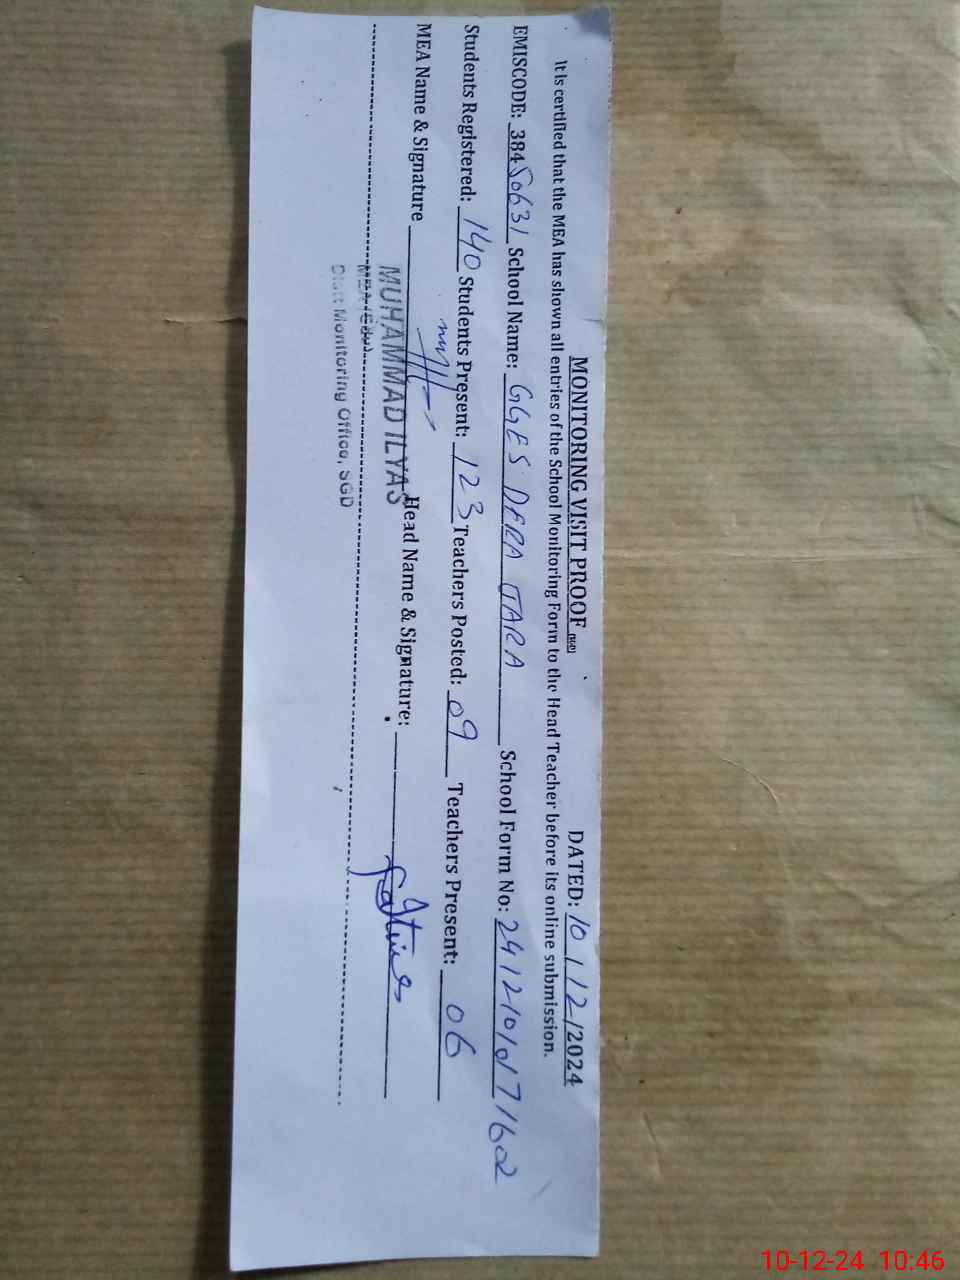 MONITORING VISIT PROOF (SGD) DATED: 10/12/2024
It is certified that the MEA has shown all entries of the School Monitoring Form to the Head Teacher before its online submission.
EMISCODE: 38450631 School Name: GGES DERA JARA School Form No:
Students Registered: 140 Students Present: 123 Teachers Posted: 09 Teachers Present: 06
MEA Name & Signature Head Name & Signature:
MUHAMMAD ILYAS
MEA (Edu)
Distt Monitoring Office, SGD
10-12-24 10:46